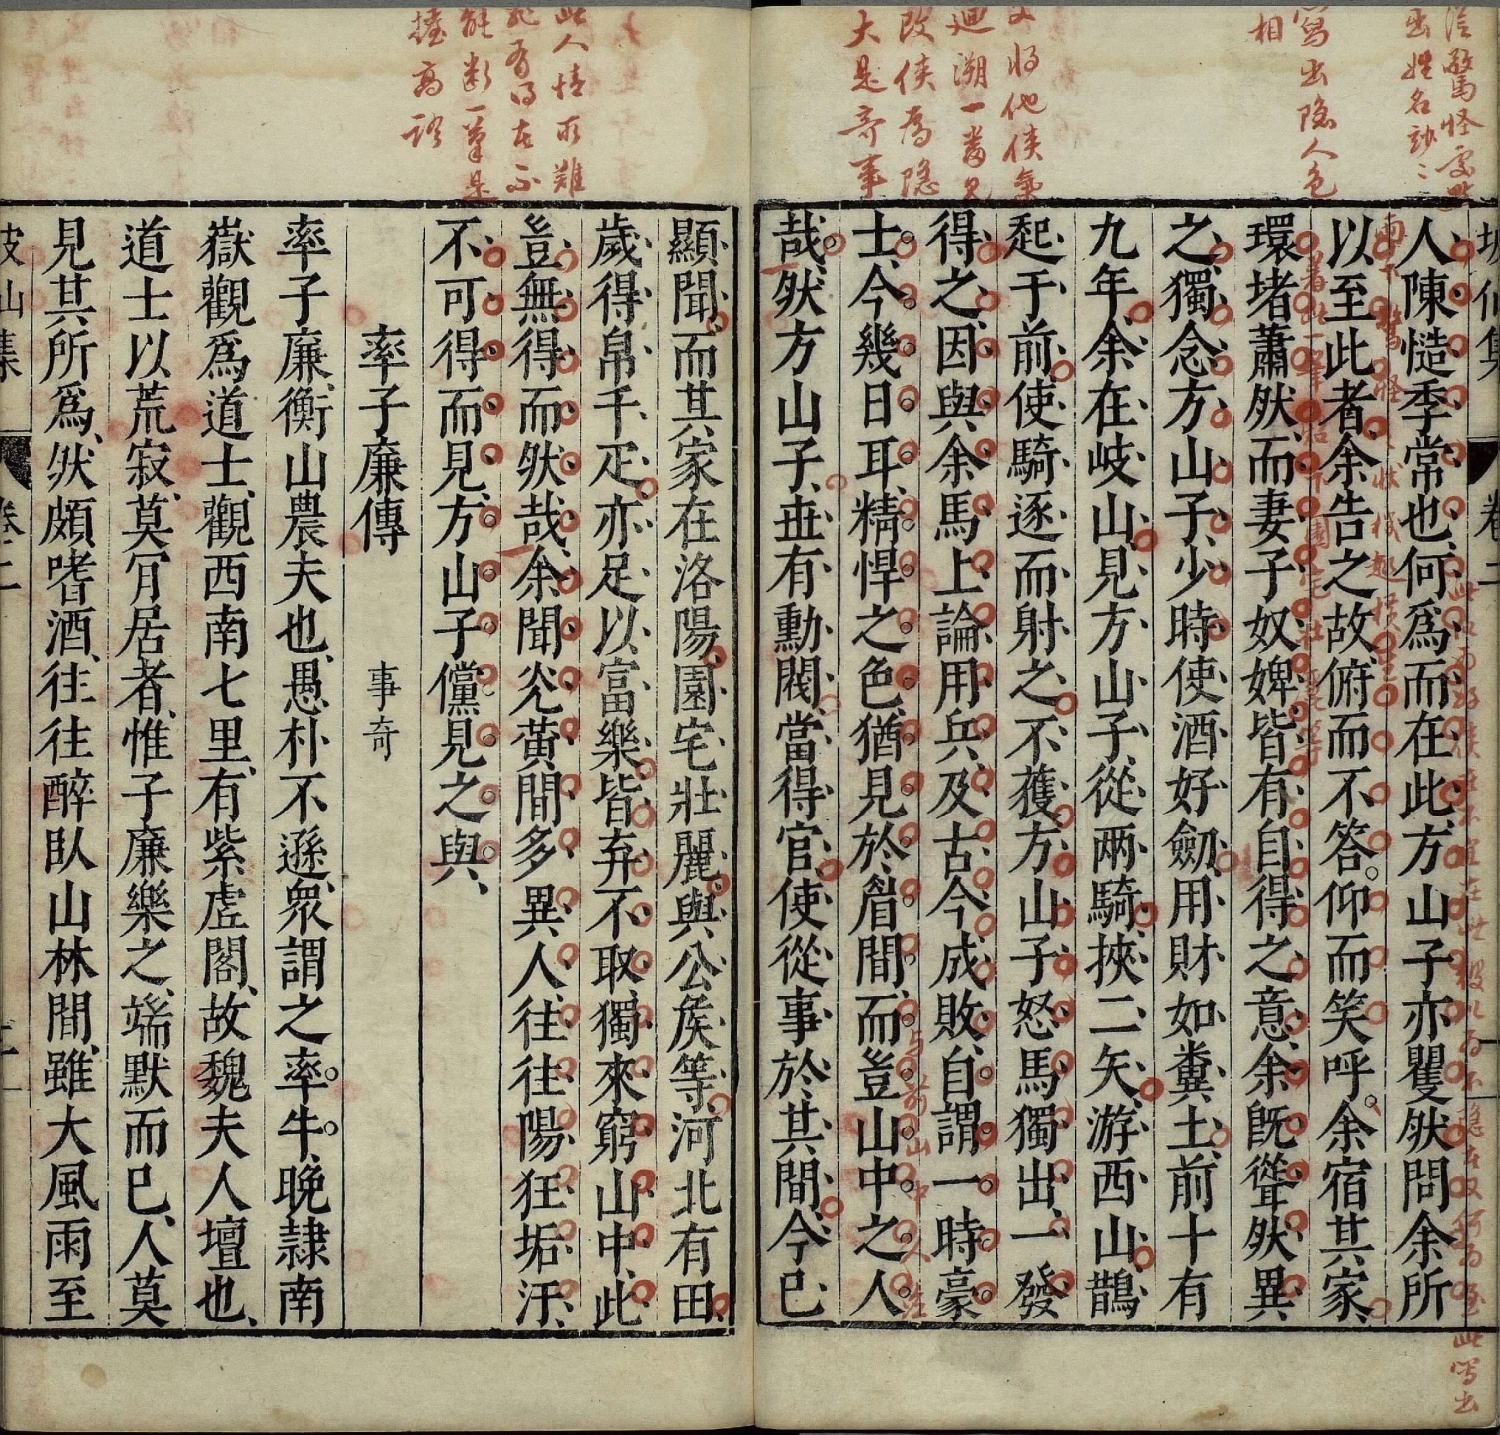 人陳慥季常也何爲而在此方山子亦瞿然問余所
以至此者余告之故俯而不答仰而笑呼余宿其家
環堵蕭然而妻子奴婢皆有自得之意余旣聳然異
之獨念方山子少時使酒好劒用財如糞土前十有
九年余在岐山見方山子從兩騎挾二矢游西山鵲
起于前使騎逐而射之不獲方山子怒馬獨出一發
得之因與余馬上論用兵及古今成敗自謂一時豪
士今幾日耳精悍之色猶見於眉間而豈山中之人
哉然方山子世有勳閥當得官使從事於其間今已
顯聞而其家在洛陽園宅壯麗與公侯等河北有田
歲得帛千疋亦足以富樂皆弃不取獨來窮山中此
豈無得而然哉余聞光黃間多異人往往陽狂垢汙
不可得而見方山子儻見之與
率子廉傳 事奇
率子廉衡山農夫也愚朴不遜衆謂之率牛晚隷南
嶽觀爲道士觀西南七里有紫虛閣故魏夫人壇也
道士以荒寂莫肎居者惟子廉樂之端默而已人莫
見其所爲然頗嗜酒往往醉臥山林間雖大風雨至
坡仙集 卷二
寫出隱人色
相
又將他俠氣
廻溯一番見
改俠爲隱
大是奇事
此人情所難
能斷一筆是
擡高語